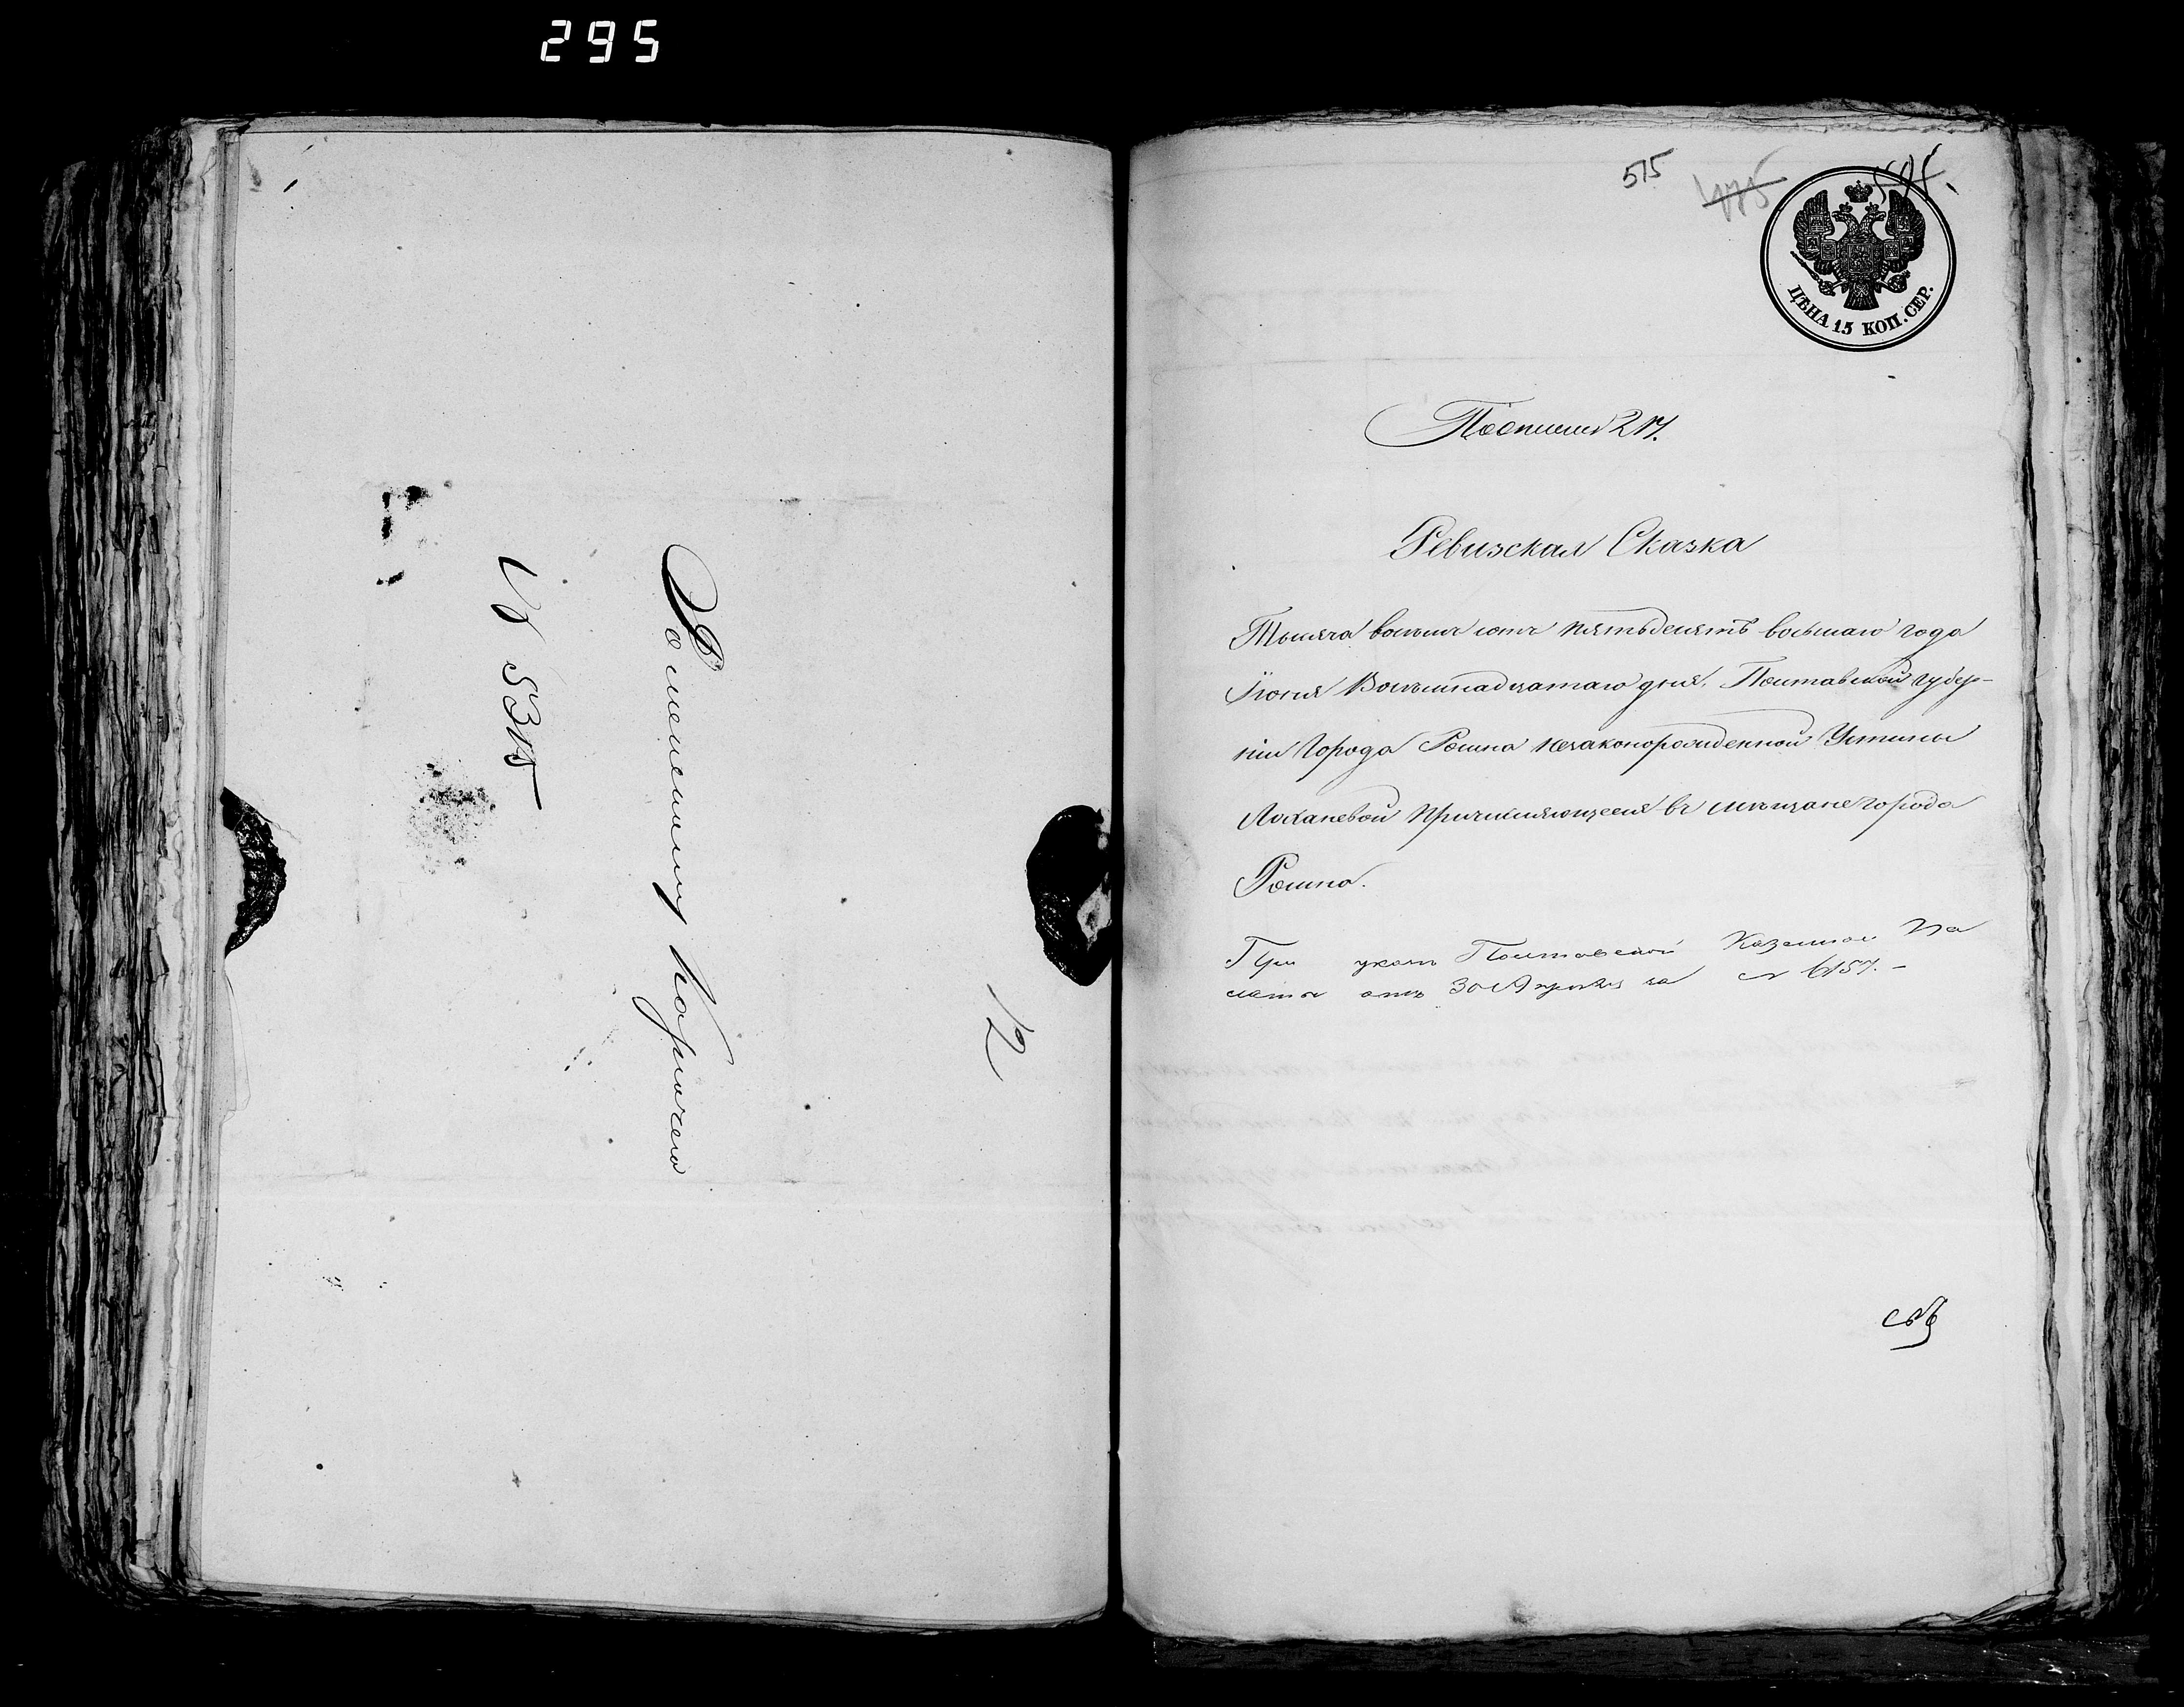 295
№ 5315
12
515
475
ЦѢНА 15 КОП. СЕР.
Ревизская Сказка
Тысяча восемь сотъ пятьдесятъ восьмаго года
Іюня Восемнадцатаго дня, Полтавской губер-
ніи Города Ромна незаконорожденной Устины
Лоханевой причисляющееся въ мѣщане города
Ромна.
При указѣ Полтавской Казенной Па
латы отъ 30 Апрѣля за № 6157.-